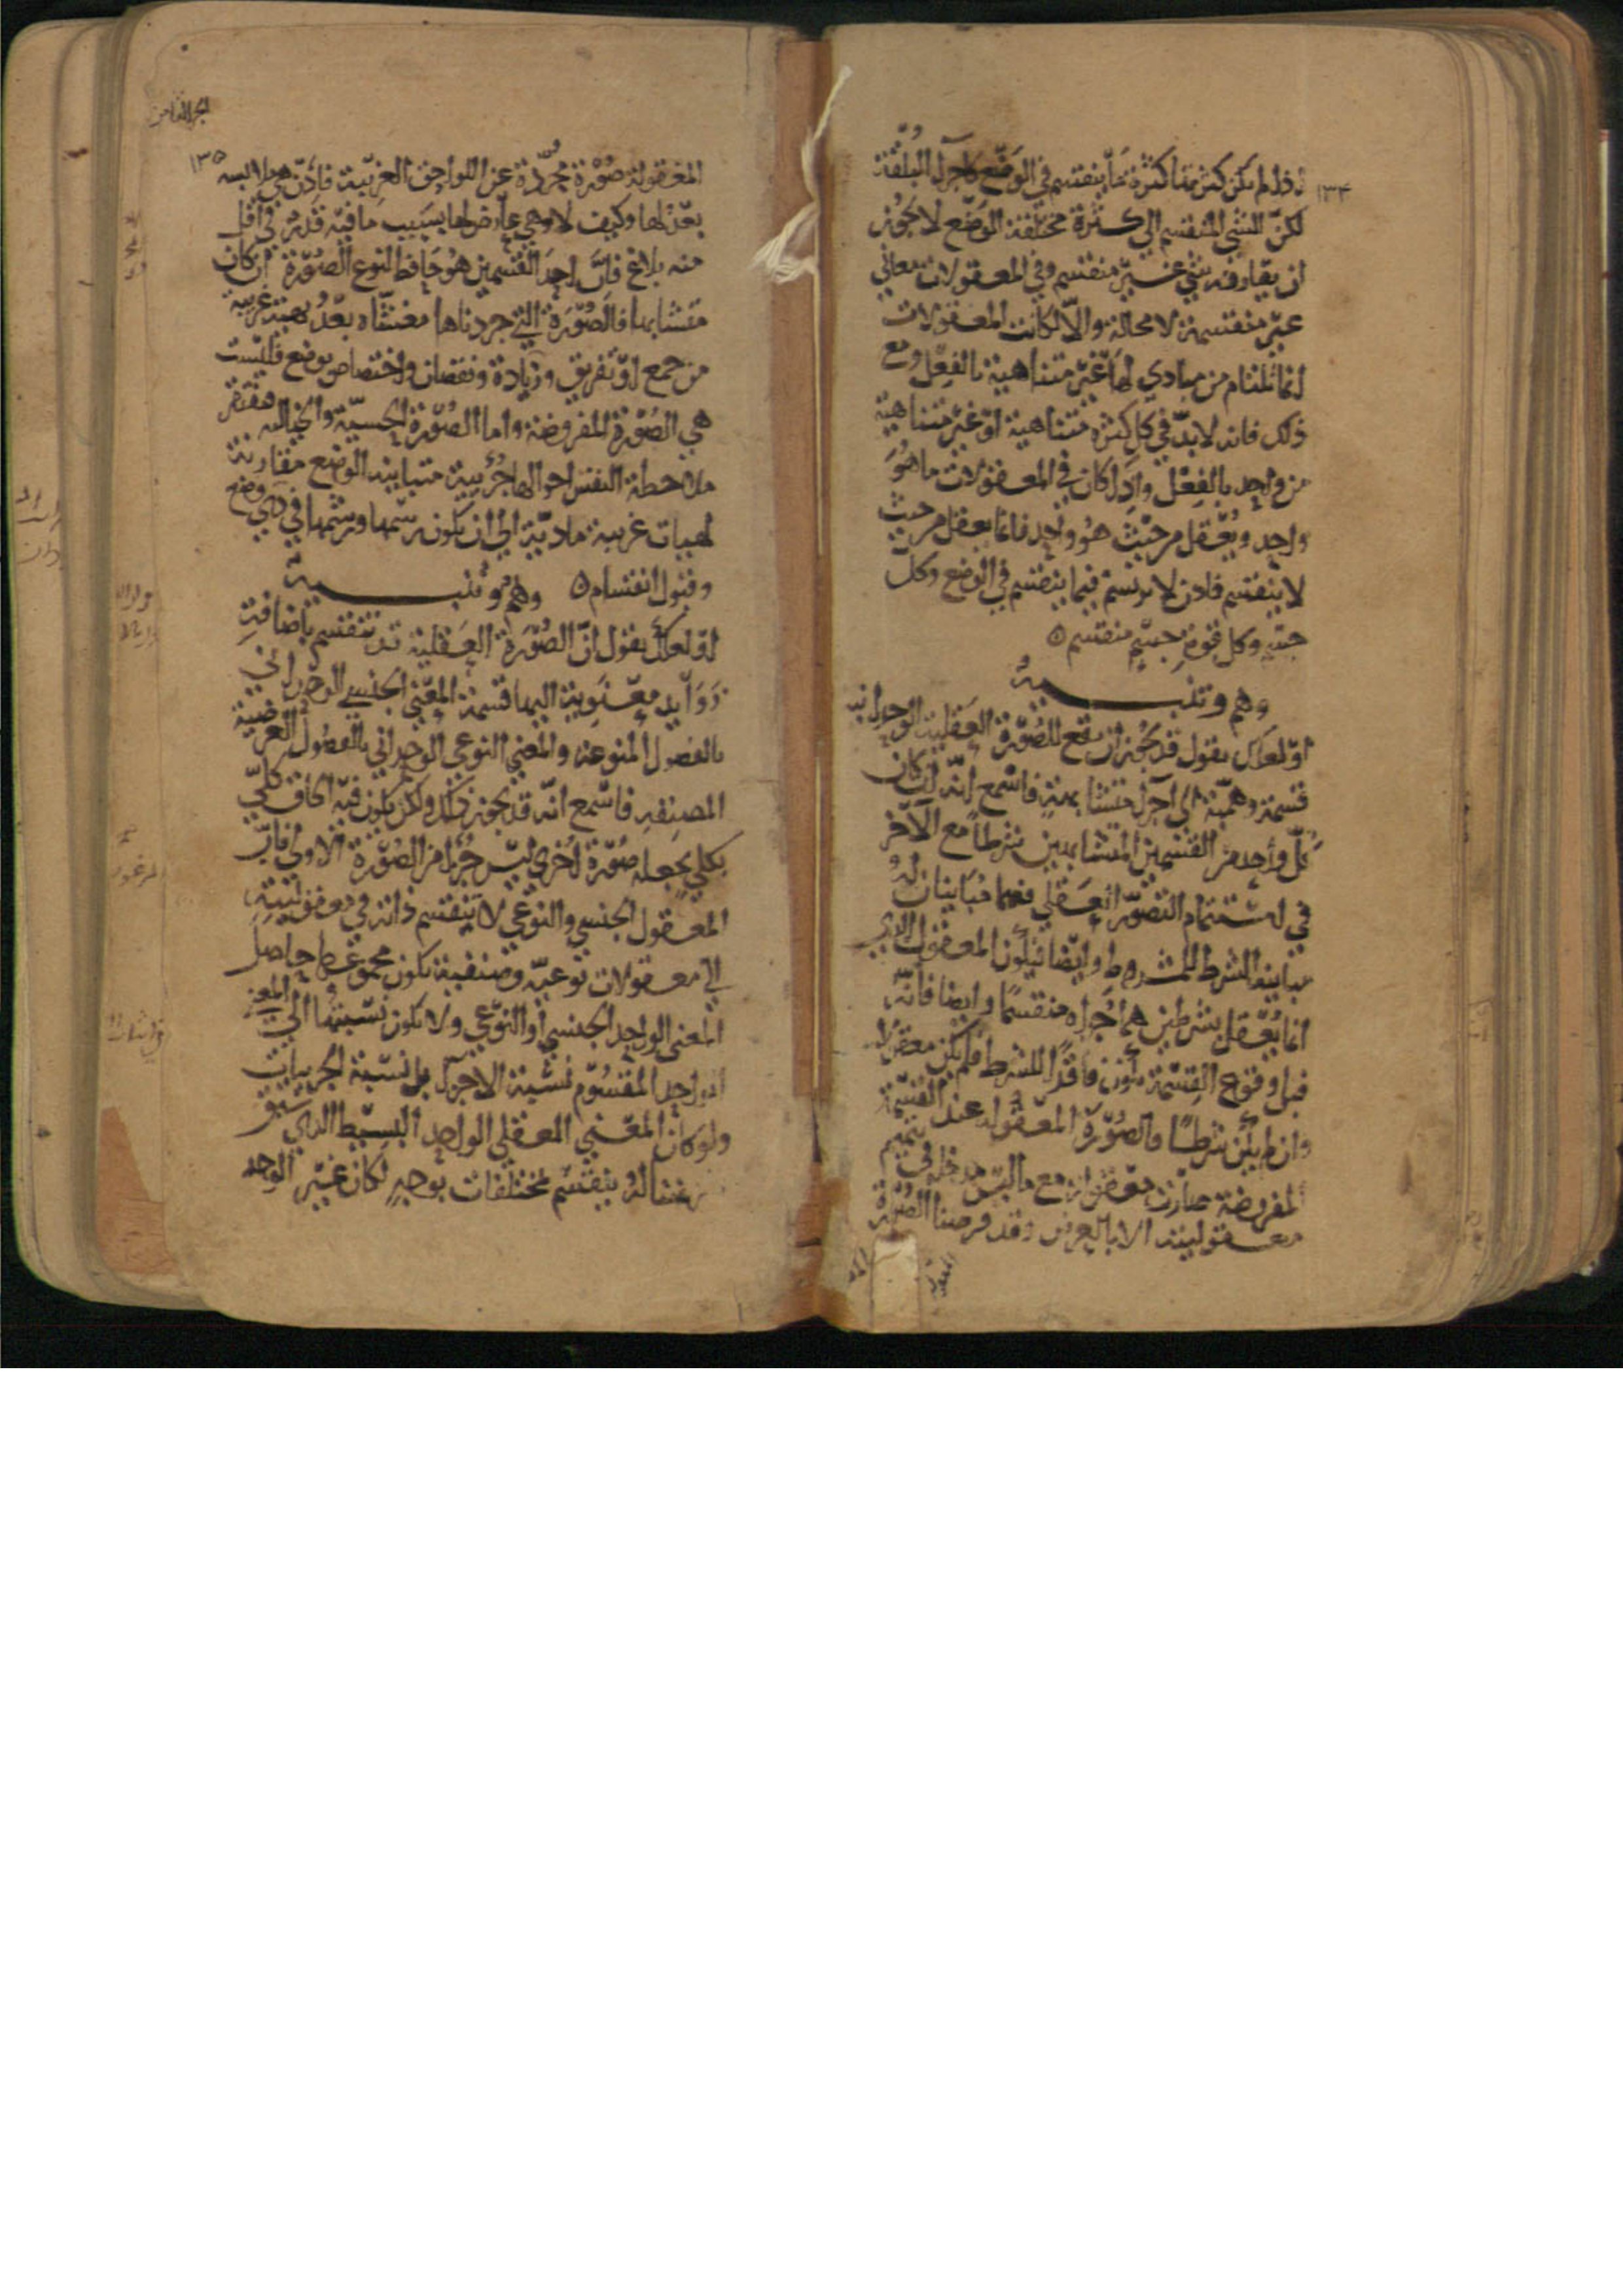 ١٣٤
اذا لم تكن كثرتها كثرة ما ينقسم في الوضع كاجزاء البلقة
لكن الشي المنقسم الي كثرة مختلفة الوضع لا يجوز
ان يقارنه شي غير منقسم وفي المعقولات معاني
غير منقسمة لا محالة والا لكانت المعقولات
انما تلتئام من مبادي لها غير متناهية بالفعل ومع
ذلك فانه لا بد في كل كثرة متناهية او غير متناهية
من واحد بالفعل واذا كان في المعقولات ما هو
واحد ويعقل من حيث هو واحد فانما يعقل من حيث
لا ينقسم فاذن لا يرتسم فيما ينقسم في الوضع وكل
جسم وكل قوة جسم منقسم
وهم وتنبيه
او لعلك تقول قد يجوز ان تقع للصورة العقلية الوحدانية
قسمة وهمية الي اجزاء متشابهة فاسمع انه ان كان
كل واحد من القسمين المتشابهين شرطا مع الاخر
في استتمام التصور العقلي فهما مباينان له
مباينة الشرط للمشروط وايضا فيكون المعقول الذي
انما يعقل بشرطين هما جزاه منقسما وايضا فانه
قبل وقوع القسمة تكون فاقدا للشرط فلم يكن معقولا
وان لم يكن شرطا فالصورة المعقولة عند القسمة
المفروضة صارت معقولة مع ما ليس مدخله في تتميم
معقوليته الا بالعرض وقد فرضنا الصورة
المعقولة
الجزء الثامن
١٣٥
المعقولة صورة مجردة عن اللواحق الغريبة فاذن هي ملابسه
بعد لها وكيف لا وهي عارض لها بسبب ما فيه قدر في اقل
منه بلاغ فان احد القسمين هو حافظ لنوع الصورة ان كان
متشابها فالصورة التي جردناها مغشاه بعد بهيئة غريبة
من جمع او تفريق وزيادة ونقصان واختصاص بوضع فليست
هي الصورة المفروضة واما الصورة الحسية والخيالية فتفتقر
ملاحظة النفس احوالها جزئية متباينة الوضع مقارنة
لهيات غريبة مادية الي ان يكون رسمها ورشمها في ذي وضع
وقبول انقسام وهم وتنبيه
او لعلك تقول ان الصورة العقلية قد تنقسم باضافة
زوايد معنوية اليها قسمة المعني الجنسي الوحداني
بالفصول المنوعة والمعني النوعي الوحداني بالفصول العرضية
المصنفه فاسمع انه قد يجوز ذلك ولكن يكون فيه الحاق كلي
بكلي يجعله صورة اخري ليس جزءا من الصورة الاولي فان
المعقول الجنسي والنوعي لا ينقسم ذاته في معقوليته
الي معقولات نوعية وصنفية يكون مجموعها حاصل
المعني الواحد الجنسي او النوعي ولا يكون نسبتها الي المعني
الواحد المقسوم نسبة الاجزاء بل نسبة الجزئيات
ولو كان المعني العقلي الواحد البسيط الذي سبق
تمثيلنا له ينقسم بمختلفات بوجه لكان غير الوجه